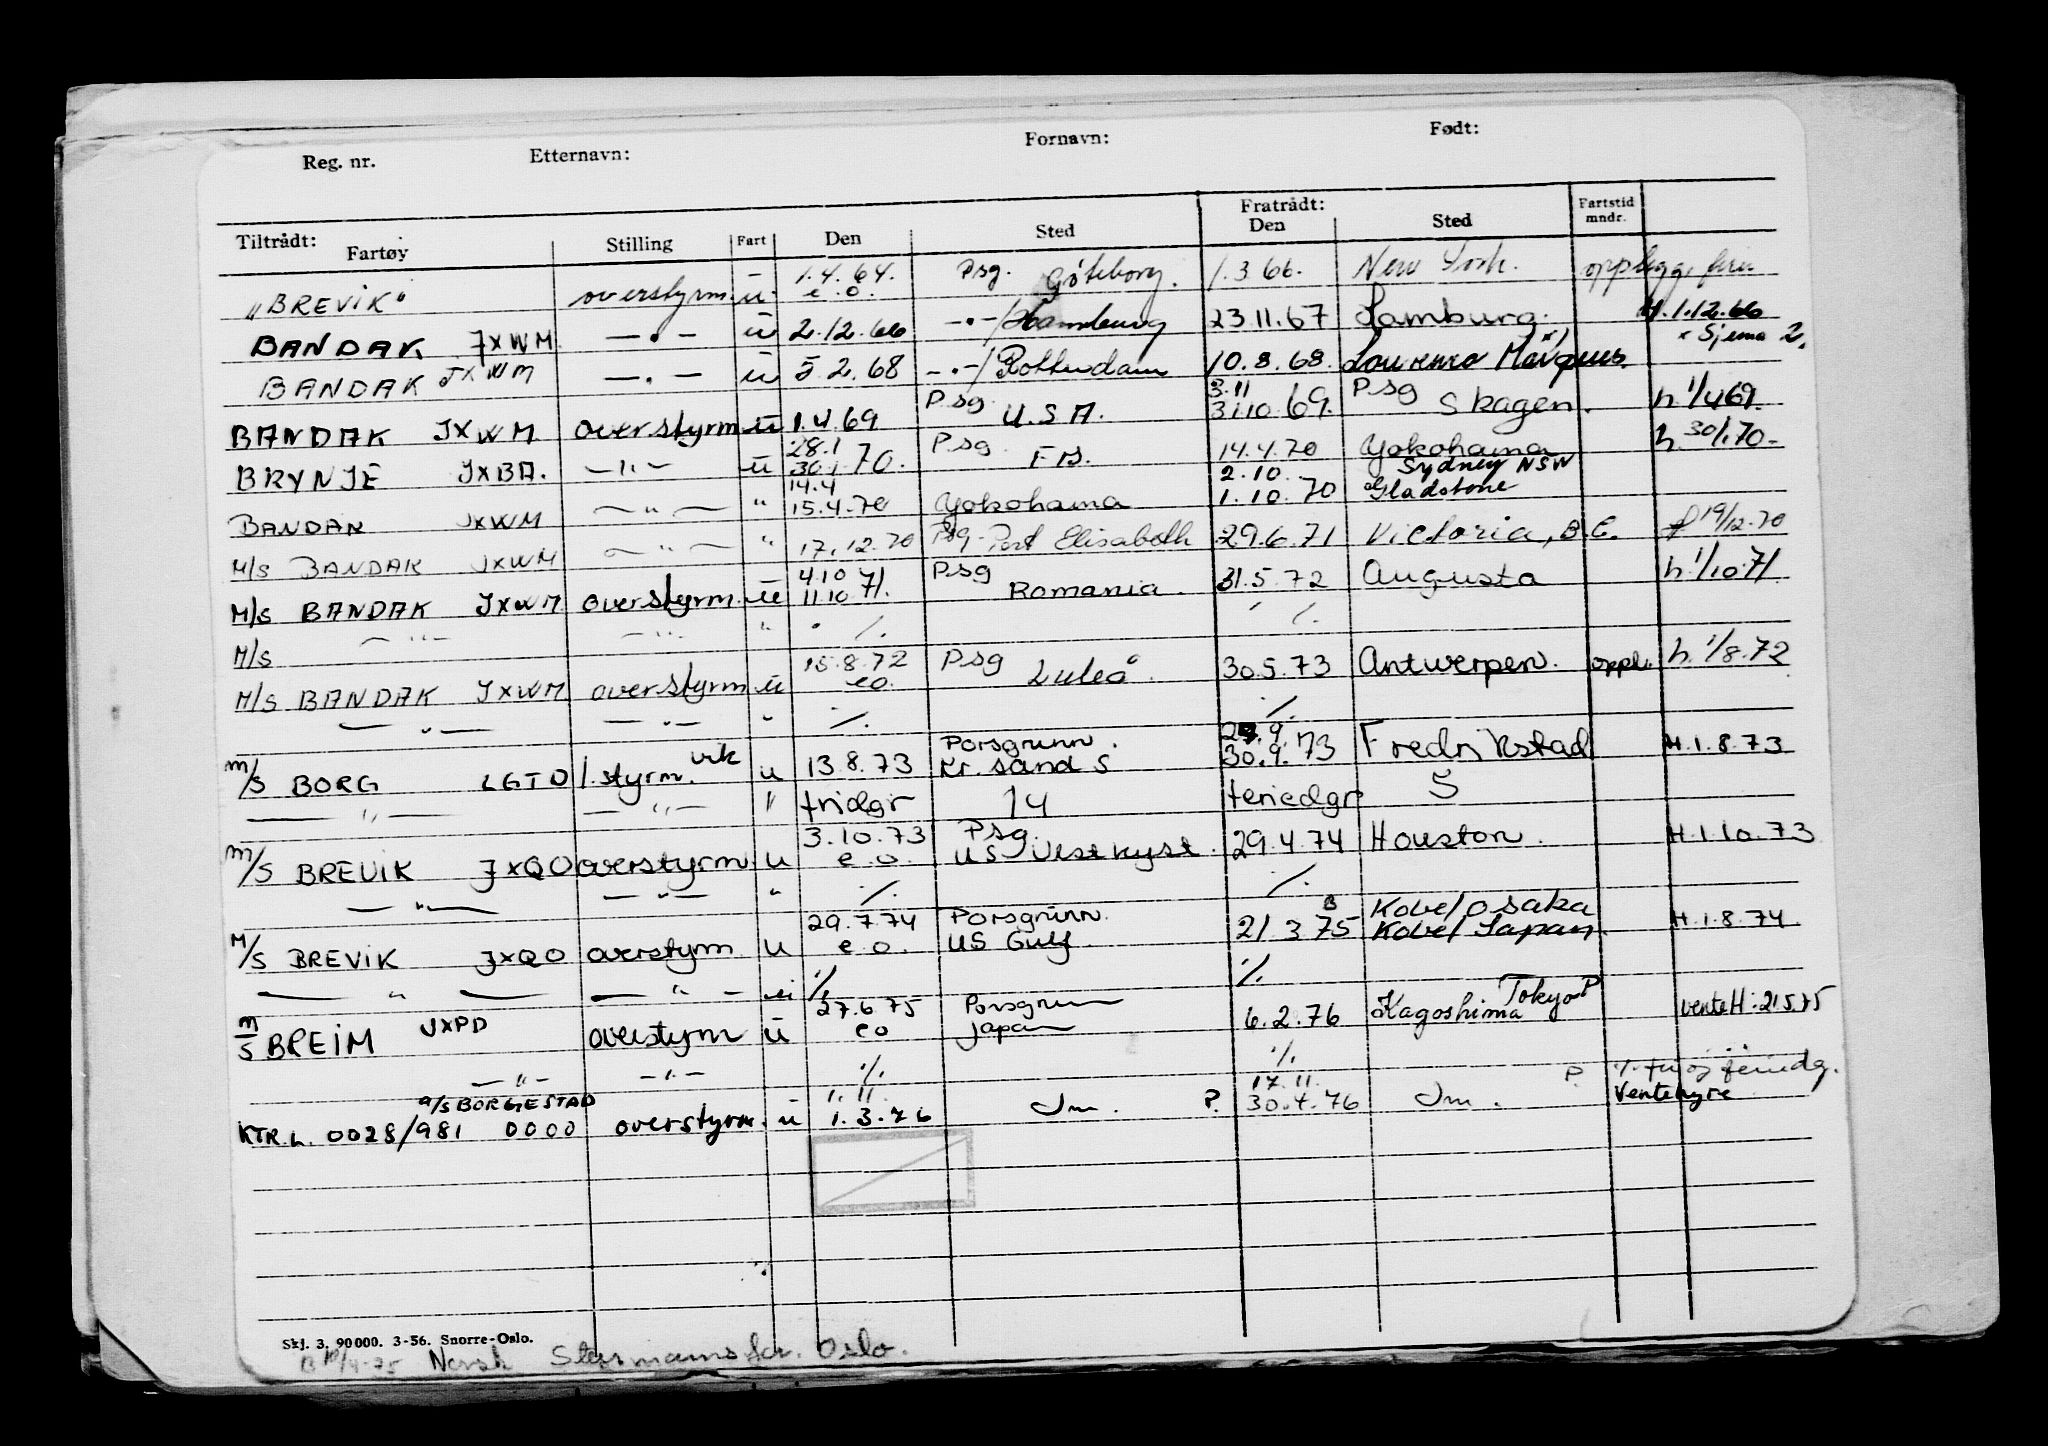 Reg. nr. Etternavn: Fornavn: Født:
Tiltrådt: Fratrådt:
Fartøy Stilling Fart Den Sted Den Sted Fartstid mndr.
1.4.64. Psg.
"BREVIK" overstyrm. u e.o. Göteborg. 1.3.66. New York. opplegg, ferie
BANDAK JXWM — " — u 2.12.66 — " —/Hamburg 23.11.67 Hamburg. H.1.12.66
x Sjema 2.
BANDAK JXWM — " — u 5.2.68 — " —/Rotterdam 10.8.68 Lourenco Marques. x)
Psg 3.11 Psg
BANDAK JXWM overstyrm. u 1.4.69 U.S.A. 31.10.69. Skagen. h. 1/4 69.
28.1 Psg
BRYNJE JXBA. — " — u 30.1.70. F.B. 14.4.70 Yokohama h. 30/1.70-
14.4 2.10. Sydney NSW
BANDAK JXWM — " — " 15.4.70 Yokohama 1.10.70 Gladstone
M/S BANDAK JXWM — " — " 17.12.70 Psg-Port Elisabeth 29.6.71 Victoria, B.C. 19/12.70
4.10 Psg
M/S BANDAK JXWM overstyrm. u 11.10.71. Romania. 31.5.72 Augusta h. 1/10.71
M/S — " — — " — " ./. ./.
15.8.72 Psg
M/S BANDAK JXWM overstyrm. u eo. Luleå. 30.5.73 Antwerpen. oppl. h. 1/8.72
— " — — " — " ./. ./.
vik Porsgrunn. 9.
M/S BORG LGTD 1.styrm. u 13.8.73 Kr.sand S 30.9.73 Fredrikstad H.1.8.73
— " — — " — " fridgr 14 feriedgr 5
3.10.73 Psg.
M/S BREVIK JXQO overstyrm. u e.o. US Vestkyst. 29.4.74 Houston. H.1.10.73
— " — — " — " ./. ./.
29.7.74 Porsgrunn. B Kobe/Osaka
M/S BREVIK JXQO overstyrm u e.o. US Gulf 21.3.75 Kobe/Japan H.1.8.74
— " — — " — ./. ./.
27.6.75 Porsgrunn Tokyo P
M/S BREIM JXPD overstyrm u eo Japan 6.2.76 Kagoshima venteH: 21.5.75
— " — — " — ./. ./. P. ./. fri og feriedg.
A/S BORGESTAD 1.11. 17.11. Ventehyre
KTR.L. 0028/981 0000 overstyrm. u 1.3.76 Jm. P. 30.4.76 Jm.
Skj. 3. 90000. 3-56. Snorre-Oslo.
Norsk Styrmannsfor. Oslo.